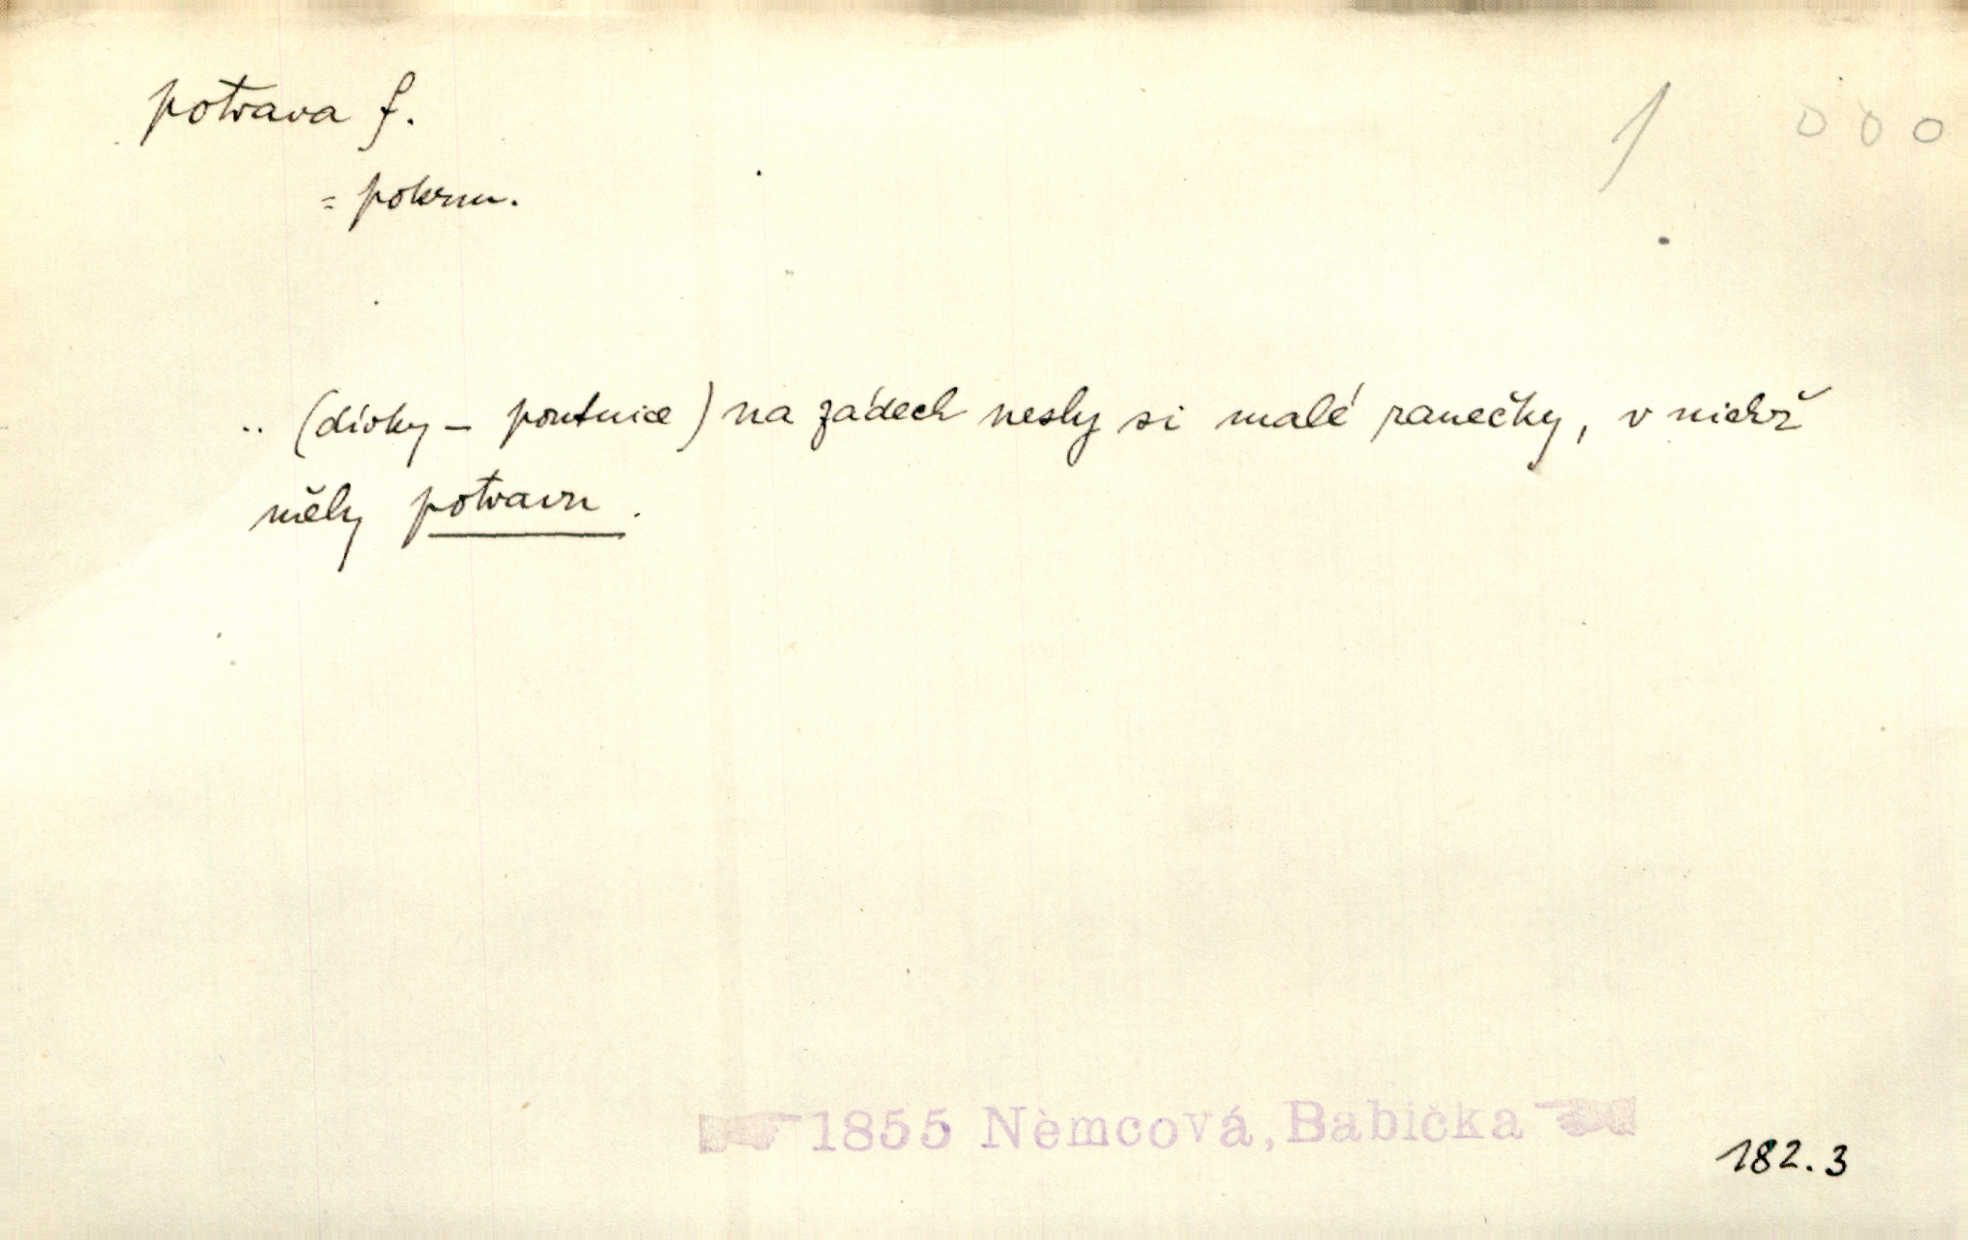 potrava f.
1 0 0 0
= pokrm.
.. (dívky – poutnice) na zádech nesly si malé ranečky, v nichž
měly potravu.
1855 Němcová, Babička
182.3